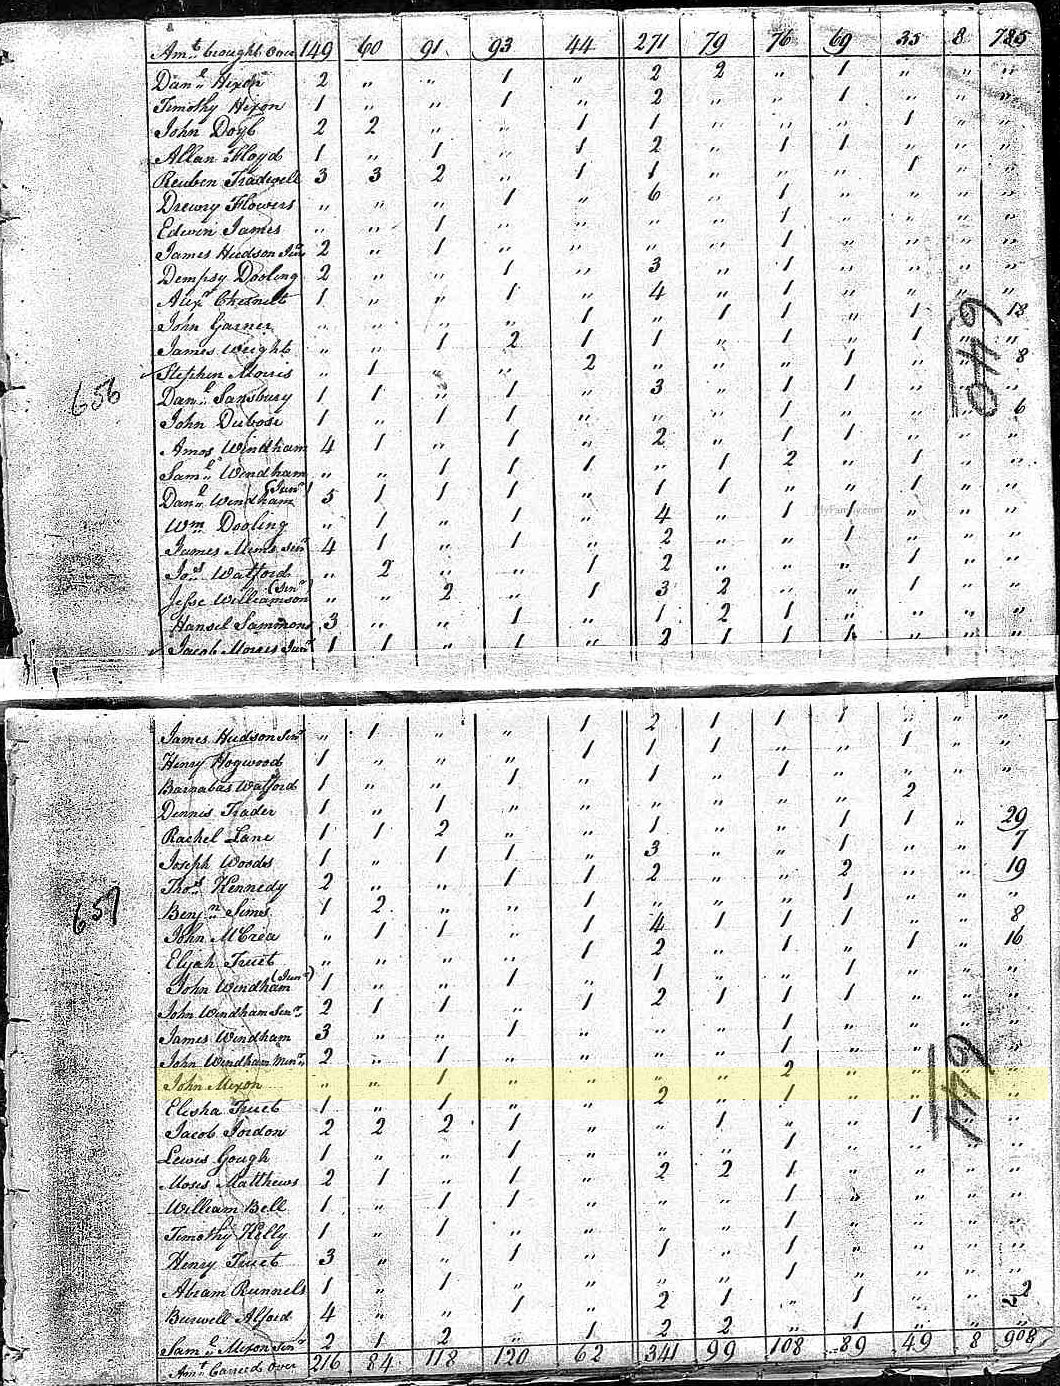 Amt brought over 149 60 91 93 44 271 79 76 69 35 8 785
Danl Hixon 2 " " 1 " 2 2 " 1 " " "
Timothy Hixon 1 " " 1 " 2 " " 1 " " "
John Doyl 2 2 " " 1 1 " " " 1 " "
Allan Floyd 1 " 1 " 1 2 " 1 1 " " "
Reuben Tradwell 3 3 2 " 1 1 " " " 1 " "
Drewry Flowers " " " 1 " 6 " 1 " " " "
Edwin James " " 1 " " " " 1 " " " "
James Hudson Junr 2 " 1 " " " " 1 " " " "
Dempsy Dooling 2 " " 1 " 3 " 1 " " " "
Alexr Chesnutt 1 " " 1 " 4 " 1 " " " "
John Garner " " " " 1 " 1 1 " 1 " 18
James Wright " " 1 2 1 1 " 1 " 1 " "
Stephen Morris " 1 " " 2 " " " 1 " " 8
656
Danl Sansbury 1 1 " 1 " 3 " 1 1 " " "
John Dubose 1 " 1 1 " " " 1 " " " 6
Amos Windham 4 1 " 1 " 2 " 1 1 " " "
Saml Windham " " 1 1 1 " 1 2 " 1 " "
Danl Windham (Junr) 5 1 1 1 " 1 1 " " 1 " "
MyFamily.com
Wm Dooling " 1 " 1 " 4 " 1 " " " "
James Mims Senr 4 1 " 1 " 2 " " 1 " " "
Jos Watford " 2 " " 1 2 " " " 1 " "
Jesse Williamson (Senr) " " 2 " 1 3 2 " " 1 " "
Hansel Sammons 3 " " 1 " 1 2 1 " " " "
Jacob Morris Junr 1 1 " 1 " 2 1 1 1 " " "
James Hudson Senr " 1 " " 1 2 1 1 1 " " "
Henry Hogwood 1 " " " 1 1 1 " " 1 " "
Barnabas Watford 1 " " 1 " 1 " 1 " " " "
Dennis Trader 1 " 1 " " " " " " 2 " "
Rachel Lane 1 1 2 " " 1 " " 1 1 " 29
Joseph Woods 1 " 1 1 " 3 " " 1 " " 7
Thos Kennedy 2 " " 1 1 2 " " 2 " " 19
657
Benjn Sims 1 2 " " 1 " " " 1 " " "
John McCrea " 1 1 " 1 4 1 1 1 " " 8
Elijah Truet " " " " 1 2 " 1 " 1 " 16
John Windham (Junr) 1 " " 1 " 1 " " 1 " " "
John Windham Senr 2 1 1 " 1 2 1 1 1 " " "
James Windham 3 " " 1 " " " 1 " " " "
John Windham Minr 2 " 1 " " " " 1 " " " "
John Mixon " " 1 " " " " 2 " " " "
Elisha Truet 1 " 1 " " 2 " 1 " " " "
Jacob Jordon 2 2 2 1 " " 1 " " 1 " "
Lewis Gough 1 " " 1 " " " 1 " " " "
Moses Matthews 2 1 " 1 " 2 2 1 " " " "
William Bell 1 " 1 1 " " " 1 " " " "
Timothy Kelly 1 " 1 " " " " 1 " " " "
Henry Truet 3 " " 1 " 1 " 1 " " " "
Abram Runnels 1 " 1 " " " " 1 " " " "
Burwell Alford 4 " " 1 " 2 1 " 1 " " 2
Saml Mixon Senr 2 1 2 " 1 2 2 " 1 " " "
Amt Carried Over 216 84 118 120 62 341 99 108 89 49 8 908